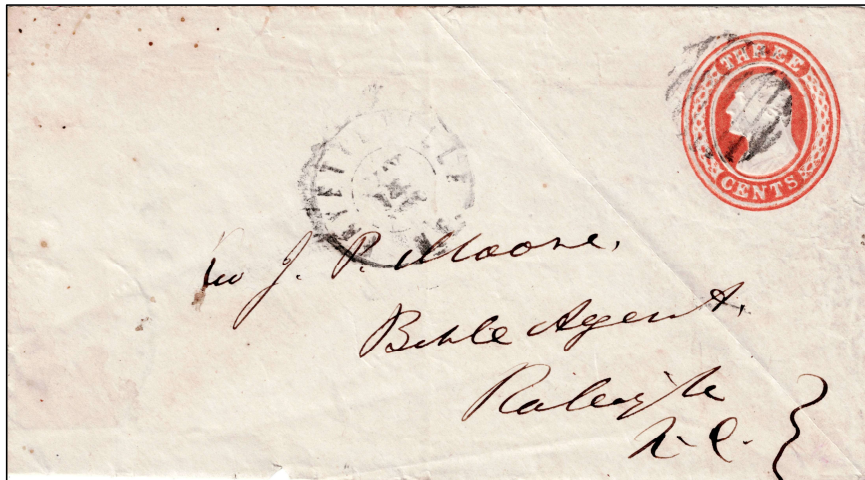 THREE
CENTS
Rev J. P. Moore,
Bible Agent,
Raleigh
N. C.